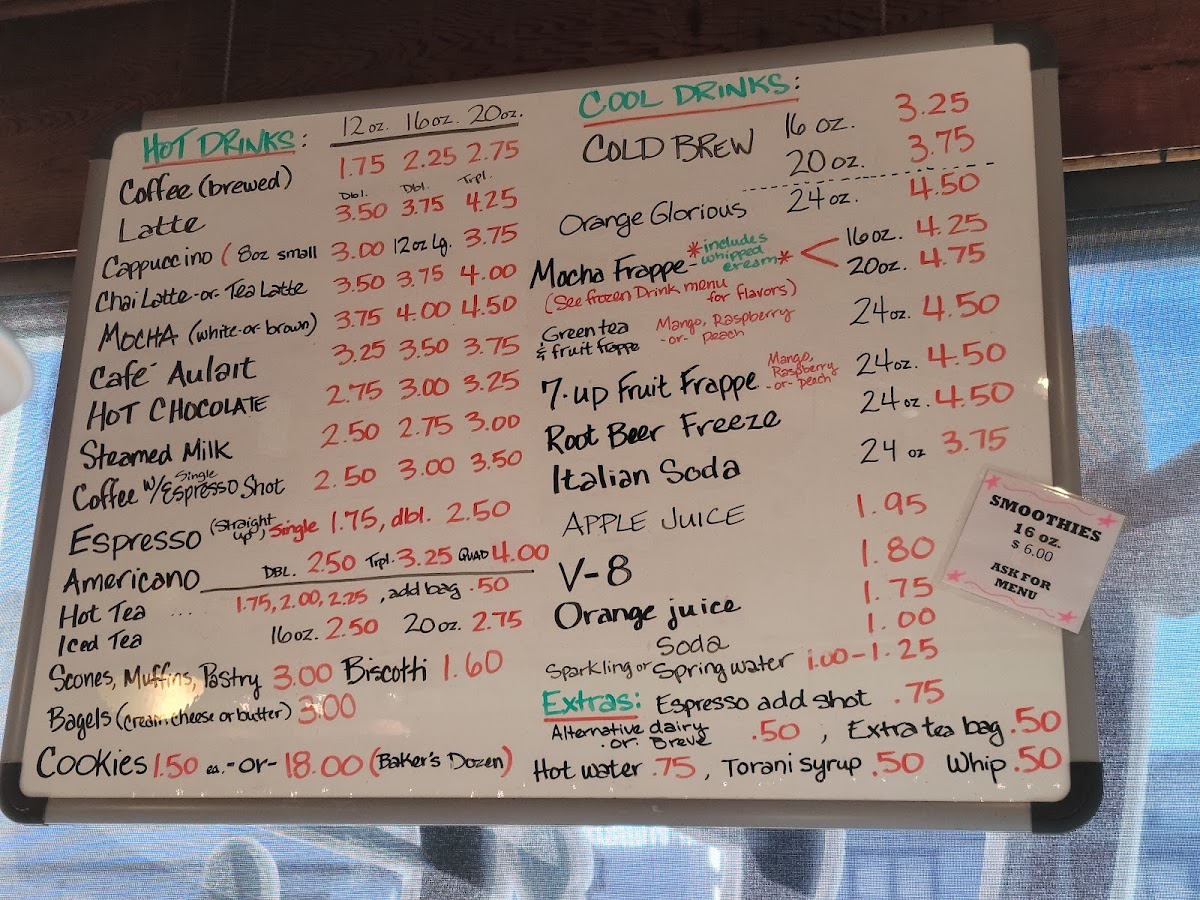 HOT DRINKS: 12 oz. 16oz. 20oz.
Coffee (brewed) 1.75 2.25 2.75
Dbl. Dbl. Trpl.
Latte 3.50 3.75 4.25
Cappuccino ( 8oz small 3.00 12oz Lg. 3.75
Chai Latte -or- Tea Latte 3.50 3.75 4.00
MOCHA (white-or-brown) 3.75 4.00 4.50
Café Aulait 3.25 3.50 3.75
HOT CHOCOLATE 2.75 3.00 3.25
Steamed Milk 2.50 2.75 3.00
Coffee w/ Single Espresso Shot 2.50 3.00 3.50
Espresso (straight up), Single 1.75, dbl. 2.50
Americano DBL. 2.50 Trpl. 3.25 QUAD 4.00
Hot Tea ... 1.75, 2.00, 2.25, add bag .50
Iced Tea 16oz. 2.50 20oz. 2.75
Scones, Muffins, Pastry 3.00 Biscotti 1.60
Bagels (cream cheese or butter) 3.00
Cookies 1.50 ea. -or- 18.00 (Baker's Dozen)
COOL DRINKS:
COLD BREW 16 oz. 3.25
20 oz. 3.75
Orange Glorious 24 oz. 4.50
Mocha Frappe - *includes whipped cream* < 16oz. 4.25
20oz. 4.75
(See frozen Drink menu for flavors)
Green tea & fruit frappe Mango, Raspberry -or- Peach 24oz. 4.50
7-up Fruit Frappe Mango, Raspberry -or- peach 24oz. 4.50
Root Beer Freeze 24oz. 4.50
Italian Soda 24 oz 3.75
APPLE JUICE 1.95
V-8 1.80
Orange juice 1.75
Soda 1.00
Sparkling or Spring water 1.00-1.25
Extras: Espresso add shot .75
Alternative dairy -or- Breve .50, Extra tea bag .50
Hot water .75, Torani syrup .50 Whip .50
SMOOTHIES
16 oz.
$ 6.00
ASK FOR
MENU